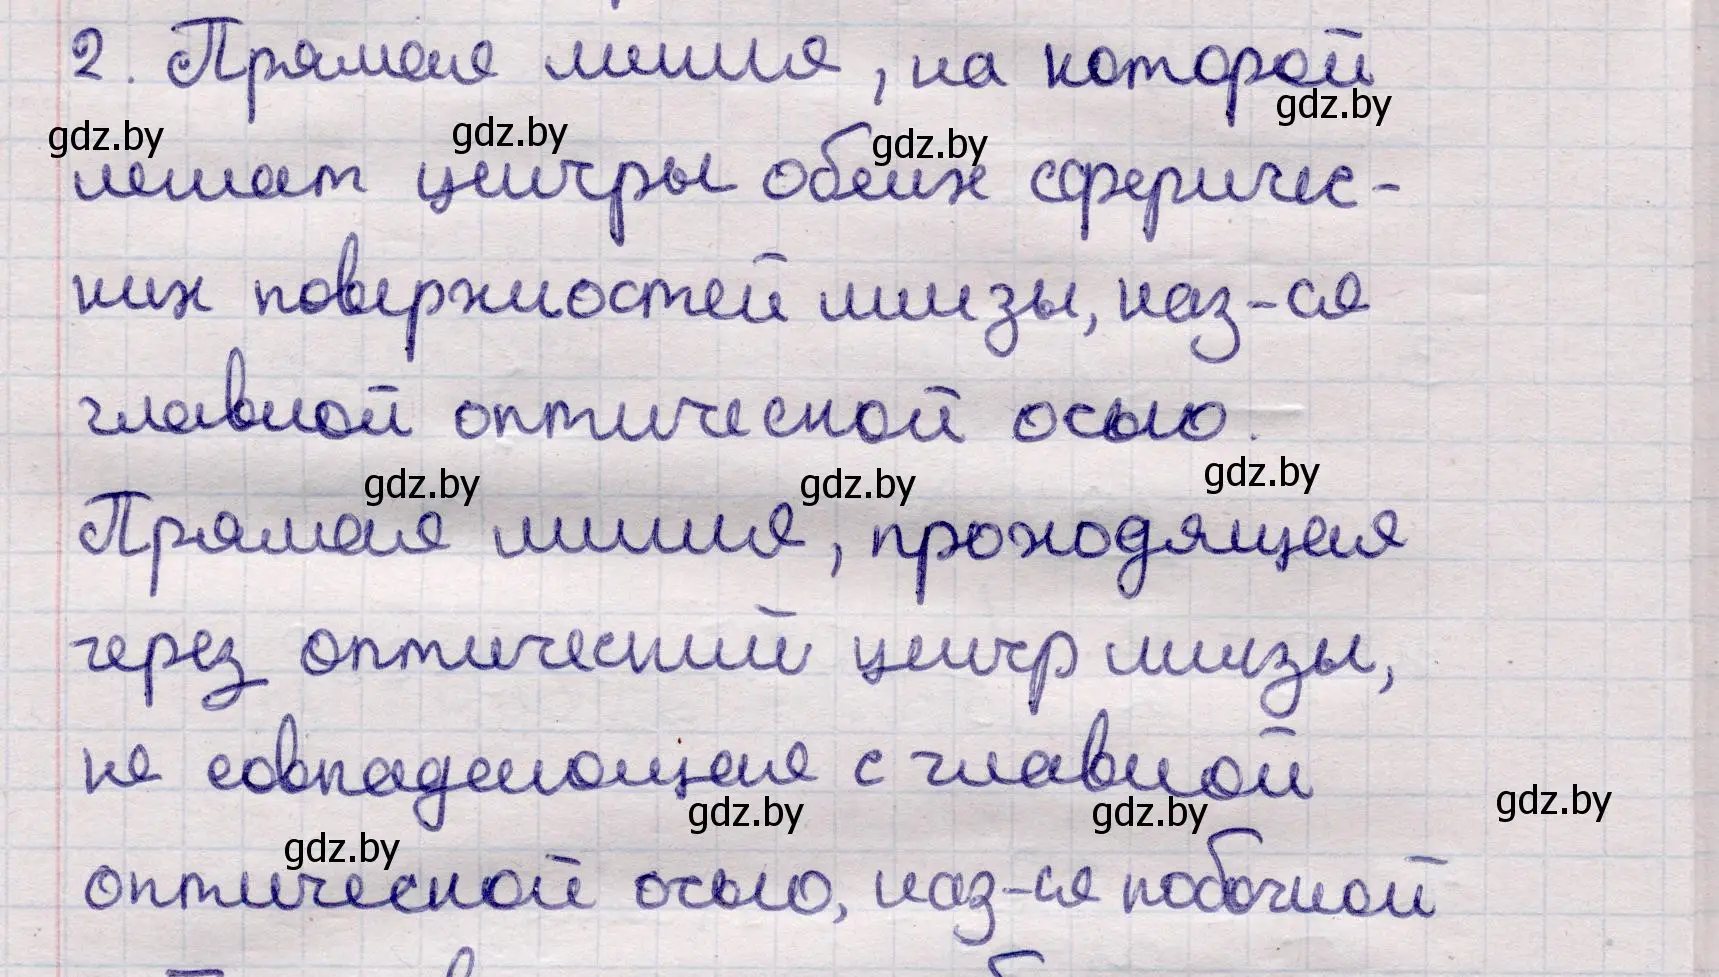 2. Прямая линия, на которой
gdz.by gdz.by gdz.by gdz.by
лежат центры обеих сферичес-
ких поверхностей линзы, наз-ся
главной оптической осью.
gdz.by gdz.by gdz.by
Прямая линия, проходящая
через оптический центр линзы,
не совпадающая с главной
gdz.by gdz.by gdz.by gdz.by
оптической осью, наз-ся побочной